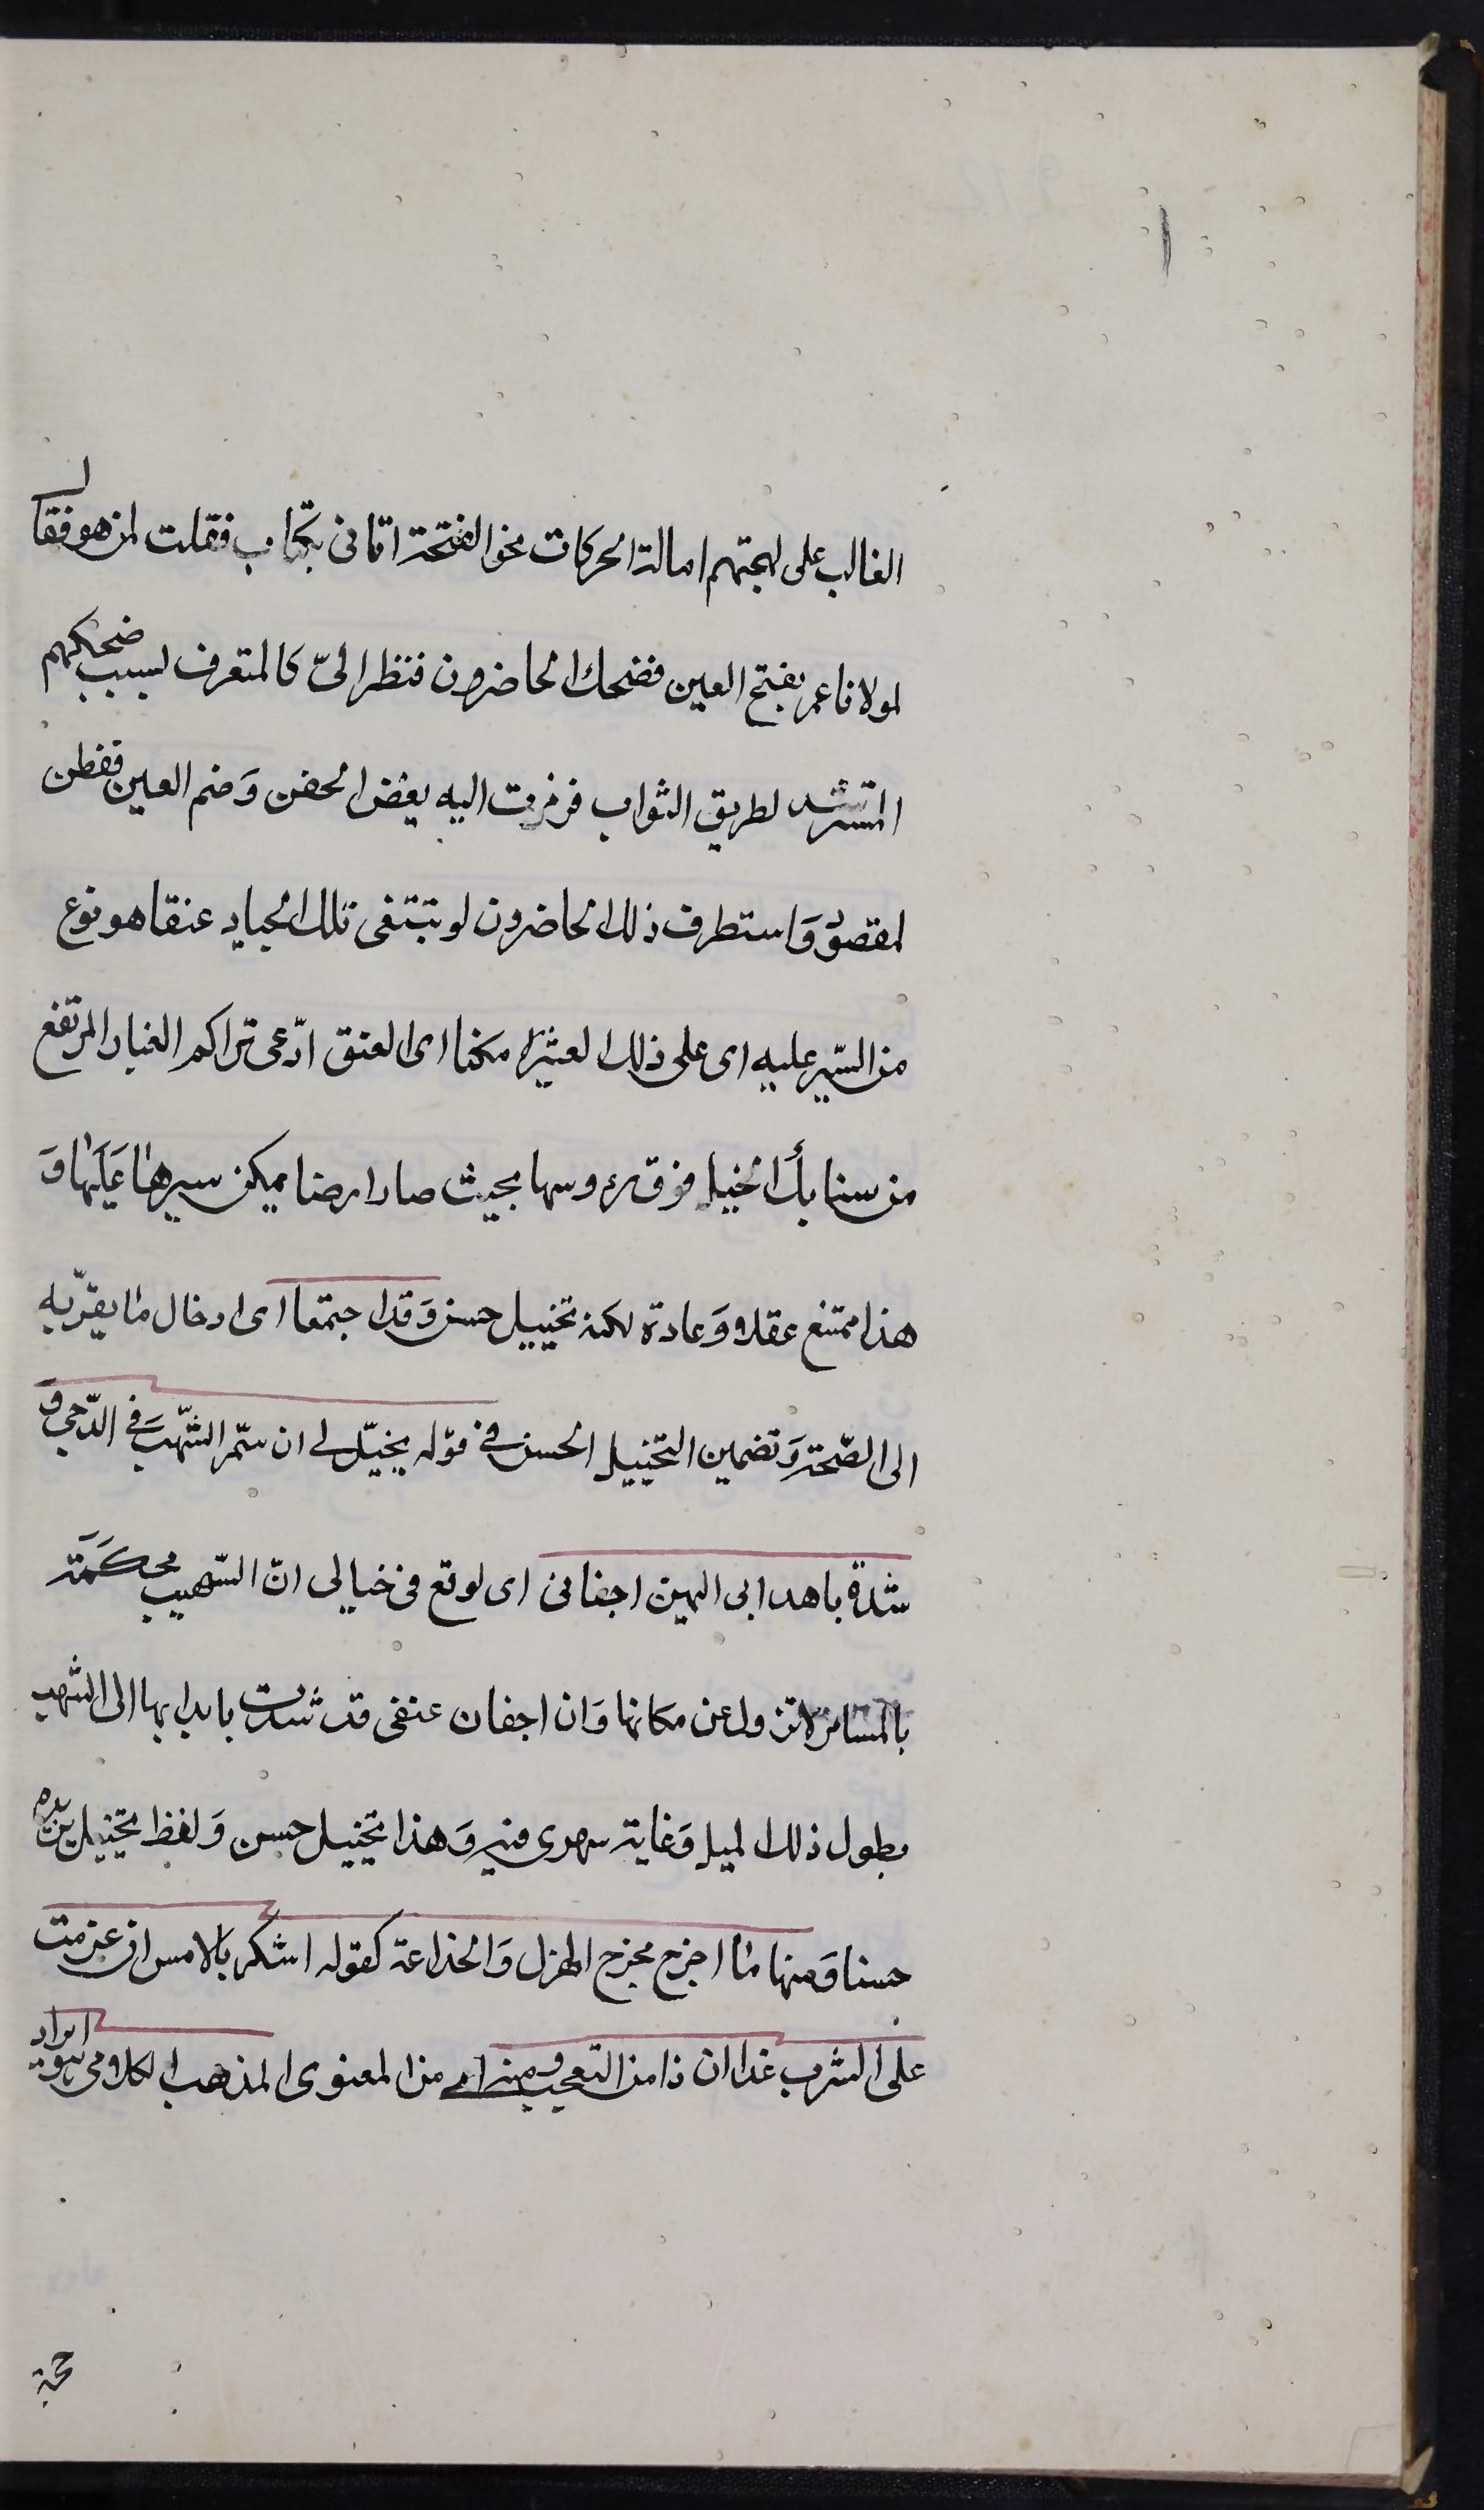 الغالب على لهجتهم امالة الحركات نحو الفتحة اتانى بكتاب فقلت لمن هو فقال
لمولانا عمر بفتح العين فضحك الحاضرون فنظر الىّ كالمتعرف لسبب ضحكهم
المسترشد لطريق الثواب فرمزت اليه بغض الجفن وَضم العين ففطن
لمقصودى وَاستطرف ذلك الحاضرون لو تبتغى تلك الجياد عنقا هو نوع
من السّير عليه اى على ذلك العثير لامكنا اى العنق ادّعى تراكم الغبار المرتفع
من سنابك الخيل فوق رءوسها بحيث صار ارضا يمكن سيرها عَليَها وَ
هذا ممتنع عقلا وَعادة لكنه تخييل حسن وَقد اجتمعا اى ادخال ما يقرّبه
الى الصّحة وَتضمين التخييل الحسن فى قوله يخيّل لى ان سمّر الشّهبَ فى الدّجى وَ
شدة باهدابى اليهن اجفانى اى يوقع فى خيالى انّ الشّهب محكمَة
بالمسامير لا تزول عن مكانها وَان اجفان عنفى قد شدت باهدابها الى الشهب
بطول ذلك الليل وَغاية سهرى فيه وَهذا تخييل حسن وَلفظ تخييل يزيده
حسنا وَمنها ما اخرج مخرج الهزل وَالخداعة كقوله اسكر بالامس ان عزمت
على الشرب غدا ان ذا من التعجب ومنه اى من المعنوى المذهب الكلامى وهو ايراد
حجة